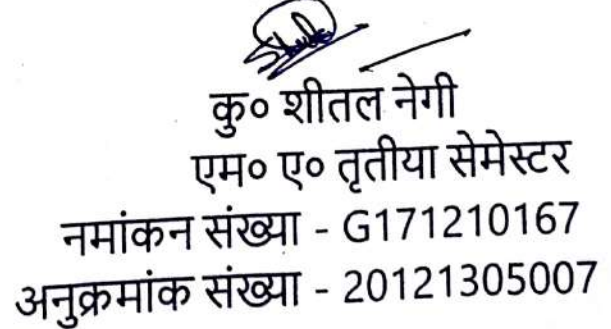 कु० शीतल नेगी
एम० ए० तृतीया सेमेस्टर
नमांकन संख्या - G171210167
अनुक्रमांक संख्या - 20121305007